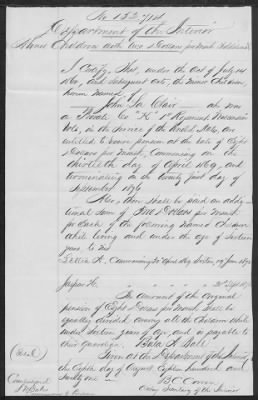 No 132.719
Department of the Interior
Minor Children with two Dollars per month Additional
I Certify, That, under the Act of July 14
1862, and subsequent acts, the minor Children,
herein named,
John St. Clair who was
a Private Co "K" 1st Regiment
Vols, in the service of the United States, are
entitled to receive pension at the rate of Eight
Dollars per month, commencing on the
thirtieth day of April 1869, and
terminating on the twenty first day of
September 1876
Also, there shall be paid an addi-
tional sum of Two Dollars per month
for each of the following named Children
while living and under the age of sixteen
years to wit
Commencing 30" April
Jasper H. " " "
The amount of the Original
pension of Eight Dollars per month shall be
equally divided among all the Children while
under sixteen years of age, and is payable to
their guardian, A. Ball
Given at the Department of the Interior,
the Eighth day of August Eighteen hundred and
seventy one
(Seal) B C Cowen
Compared Acting Secretary of the Interior
Commissioner of Pensions